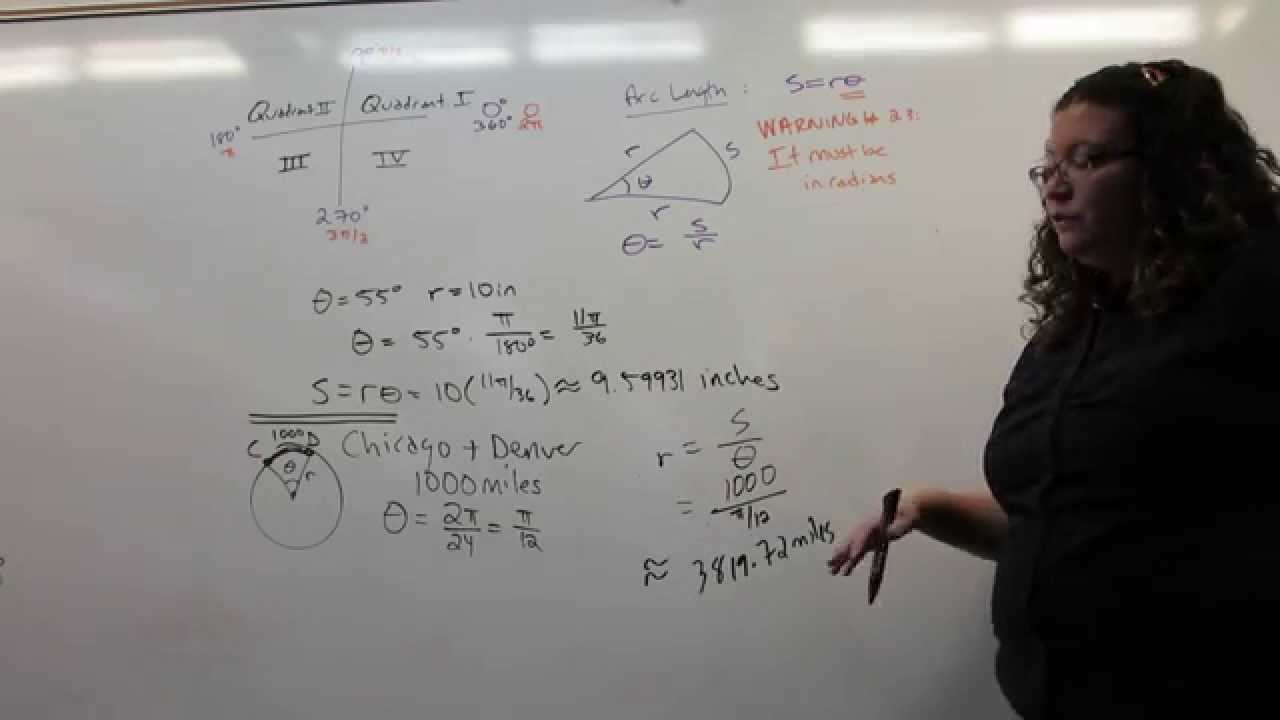 90° π/2
Quadrant II Quadrant I
180°
π
0° 0
360° 2π
III IV
270°
3π/2
Arc Length : S=rθ
WARNING # 23:
It must be
in radians
r S
θ
r
θ= S/r
θ=55° r=10in
θ= 55° · π/180° = 11π/36
S=rθ=10(11π/36)≈9.59931 inches
C 1000 D
θ r
Chicago + Denver
1000 miles
θ= 2π/24 = π/12
r = S/θ
= 1000/π/12
≈ 3819.72 miles